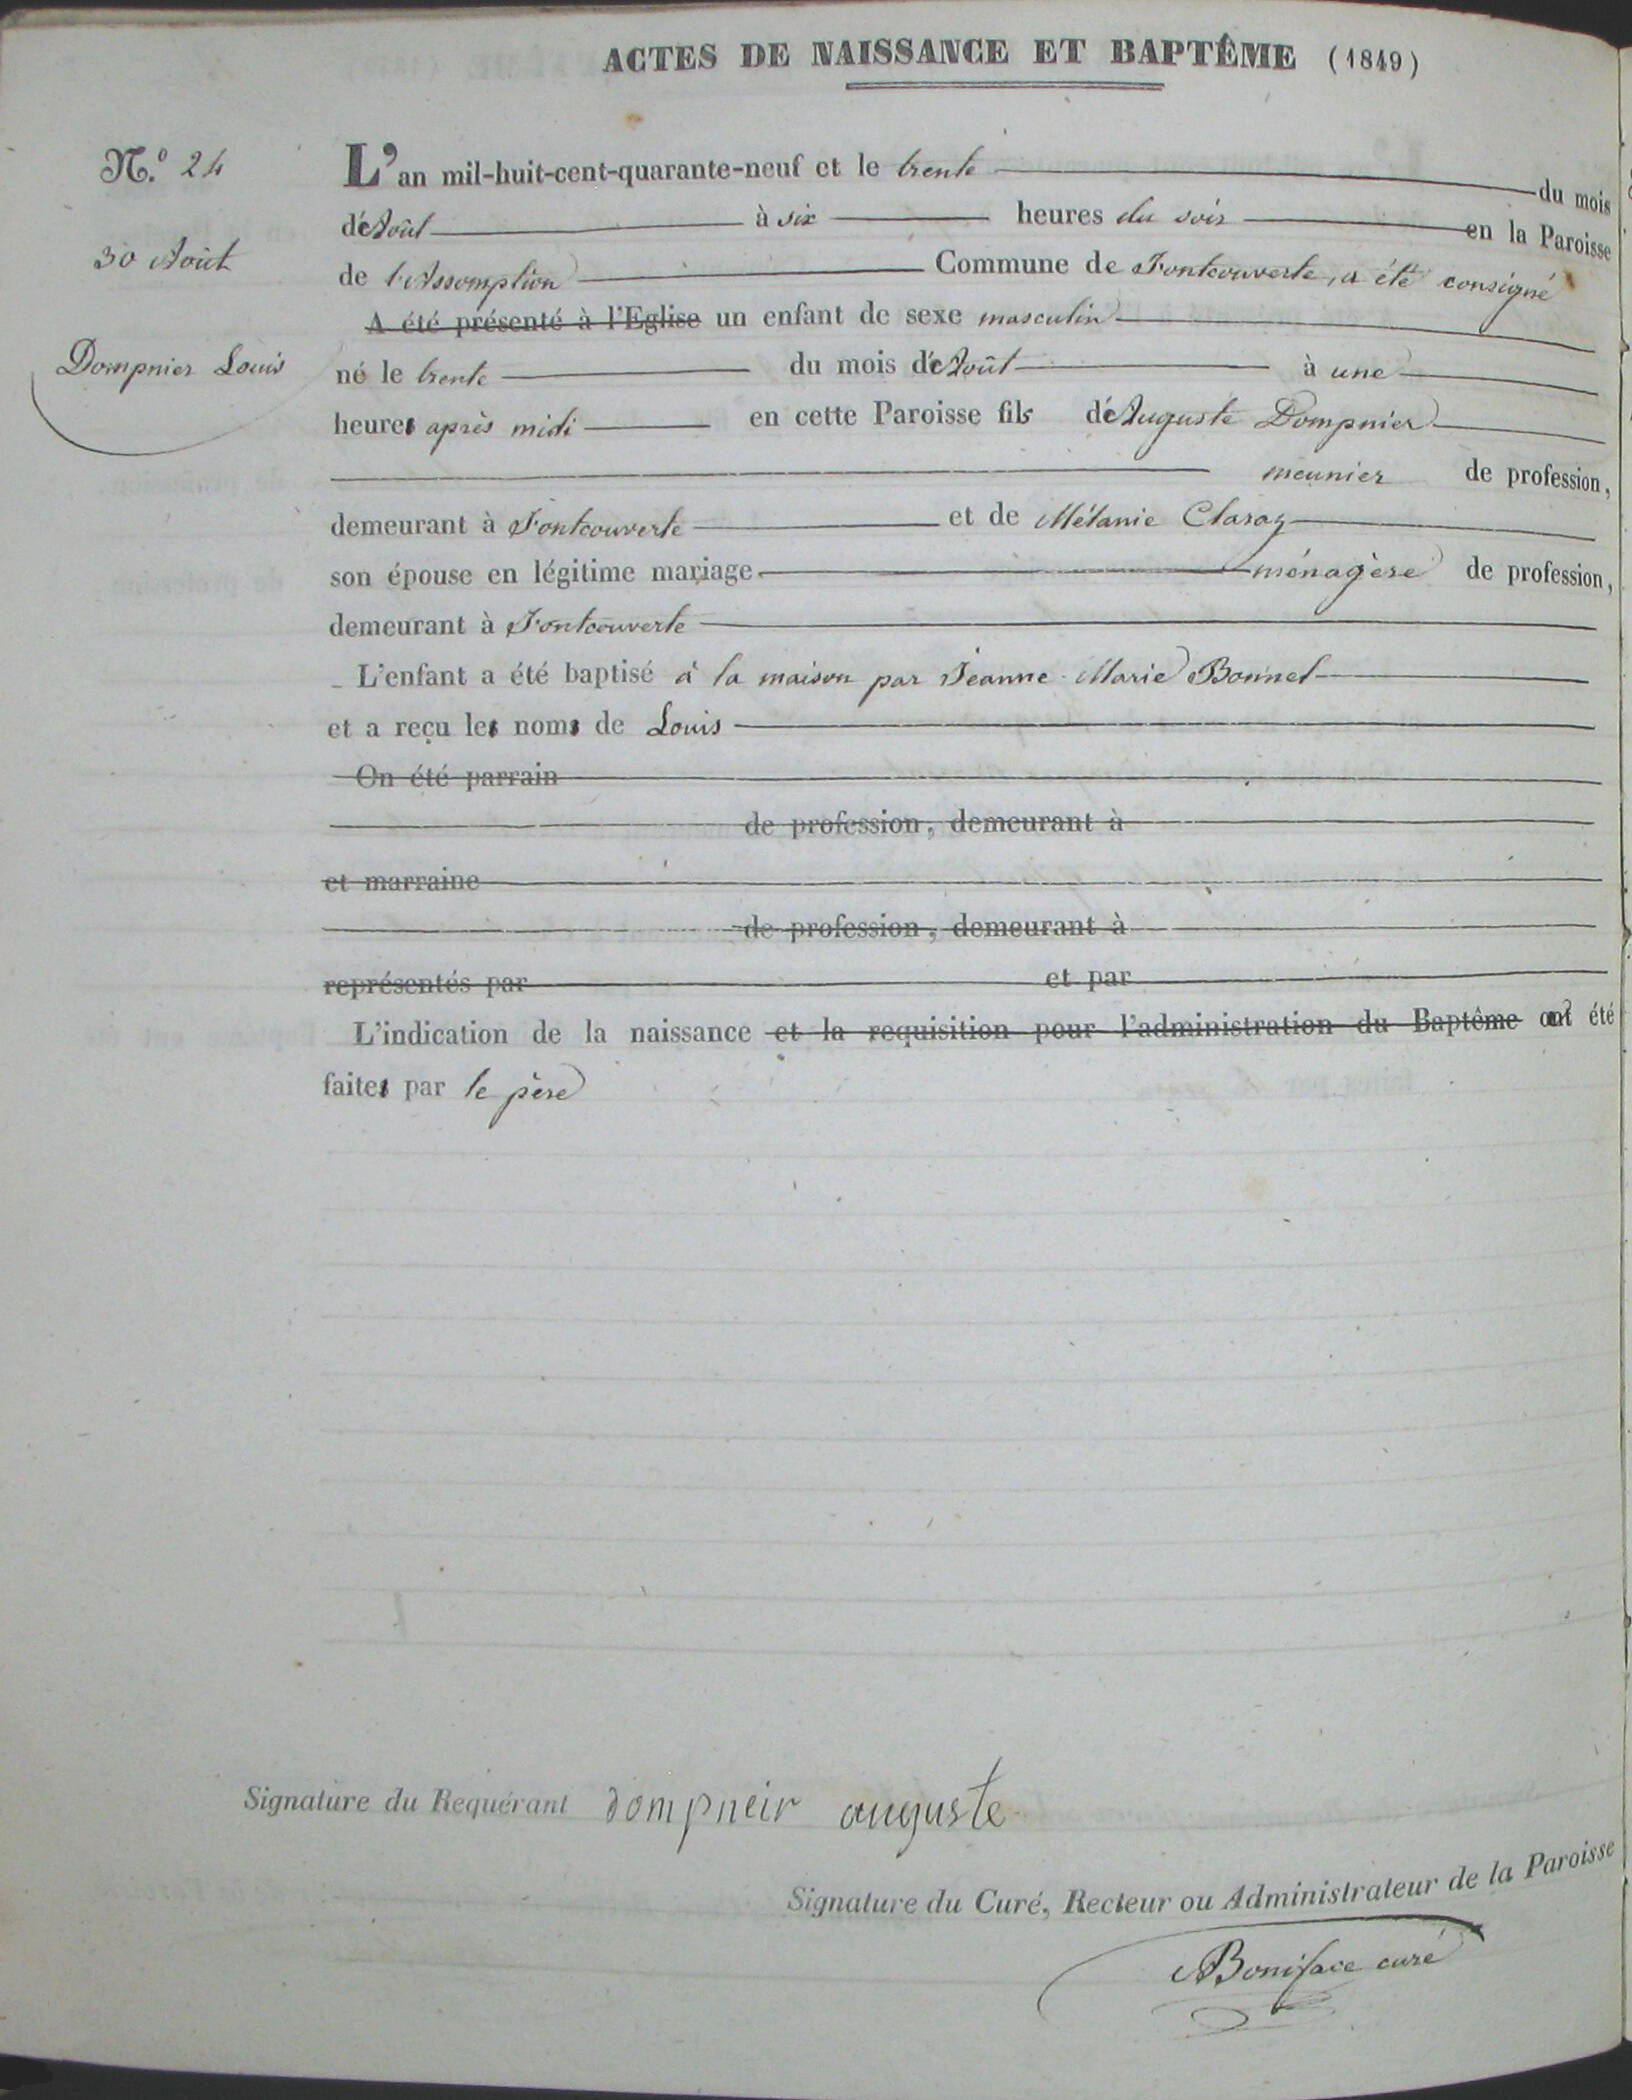 ACTES DE NAISSANCE ET BAPTÊME (1849)
N.º 24
30 Août
Dompnier Louis
L'an mil-huit-cent-quarante-neuf et le trente du mois
d'Août à six heures du soir en la Paroisse
de l'Assomption Commune de Fontcouverte, a été consigné
A été présenté à l'Eglise un enfant de sexe masculin
né le trente du mois d'Août à une
heure après midi en cette Paroisse fils d'Auguste Dompnier
meunier de profession,
demeurant à Fontcouverte et de Mélanie Claraz
son épouse en légitime mariage ménagère de profession,
demeurant à Fontcouverte
L'enfant a été baptisé à la maison par Jeanne-Marie Bonnel
et a reçu les noms de Louis
On été parrain
de profession, demeurant à
et marraine
de profession, demeurant à
représentés par et par
L'indication de la naissance et la requisition pour l'administration du Baptême ont été
faites par le père
Signature du Requérant dompneir auguste
Signature du Curé, Recteur ou Administrateur de la Paroisse
Boniface curé